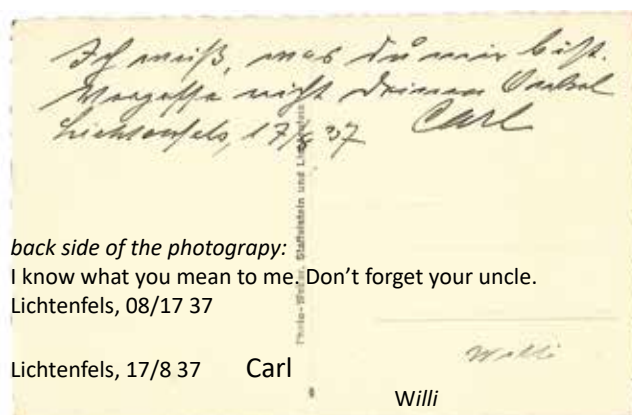 Ich weiß, was du mir bist.
Vergesse nicht deinen Onkel
Lichtenfels, 17/8 37 Carl
Photo-Weber, Staffelstein und Lichtenfels
back side of the photograpy:
I know what you mean to me. Don't forget your uncle.
Lichtenfels, 08/17 37
Willi
Lichtenfels, 17/8 37 Carl
Willi